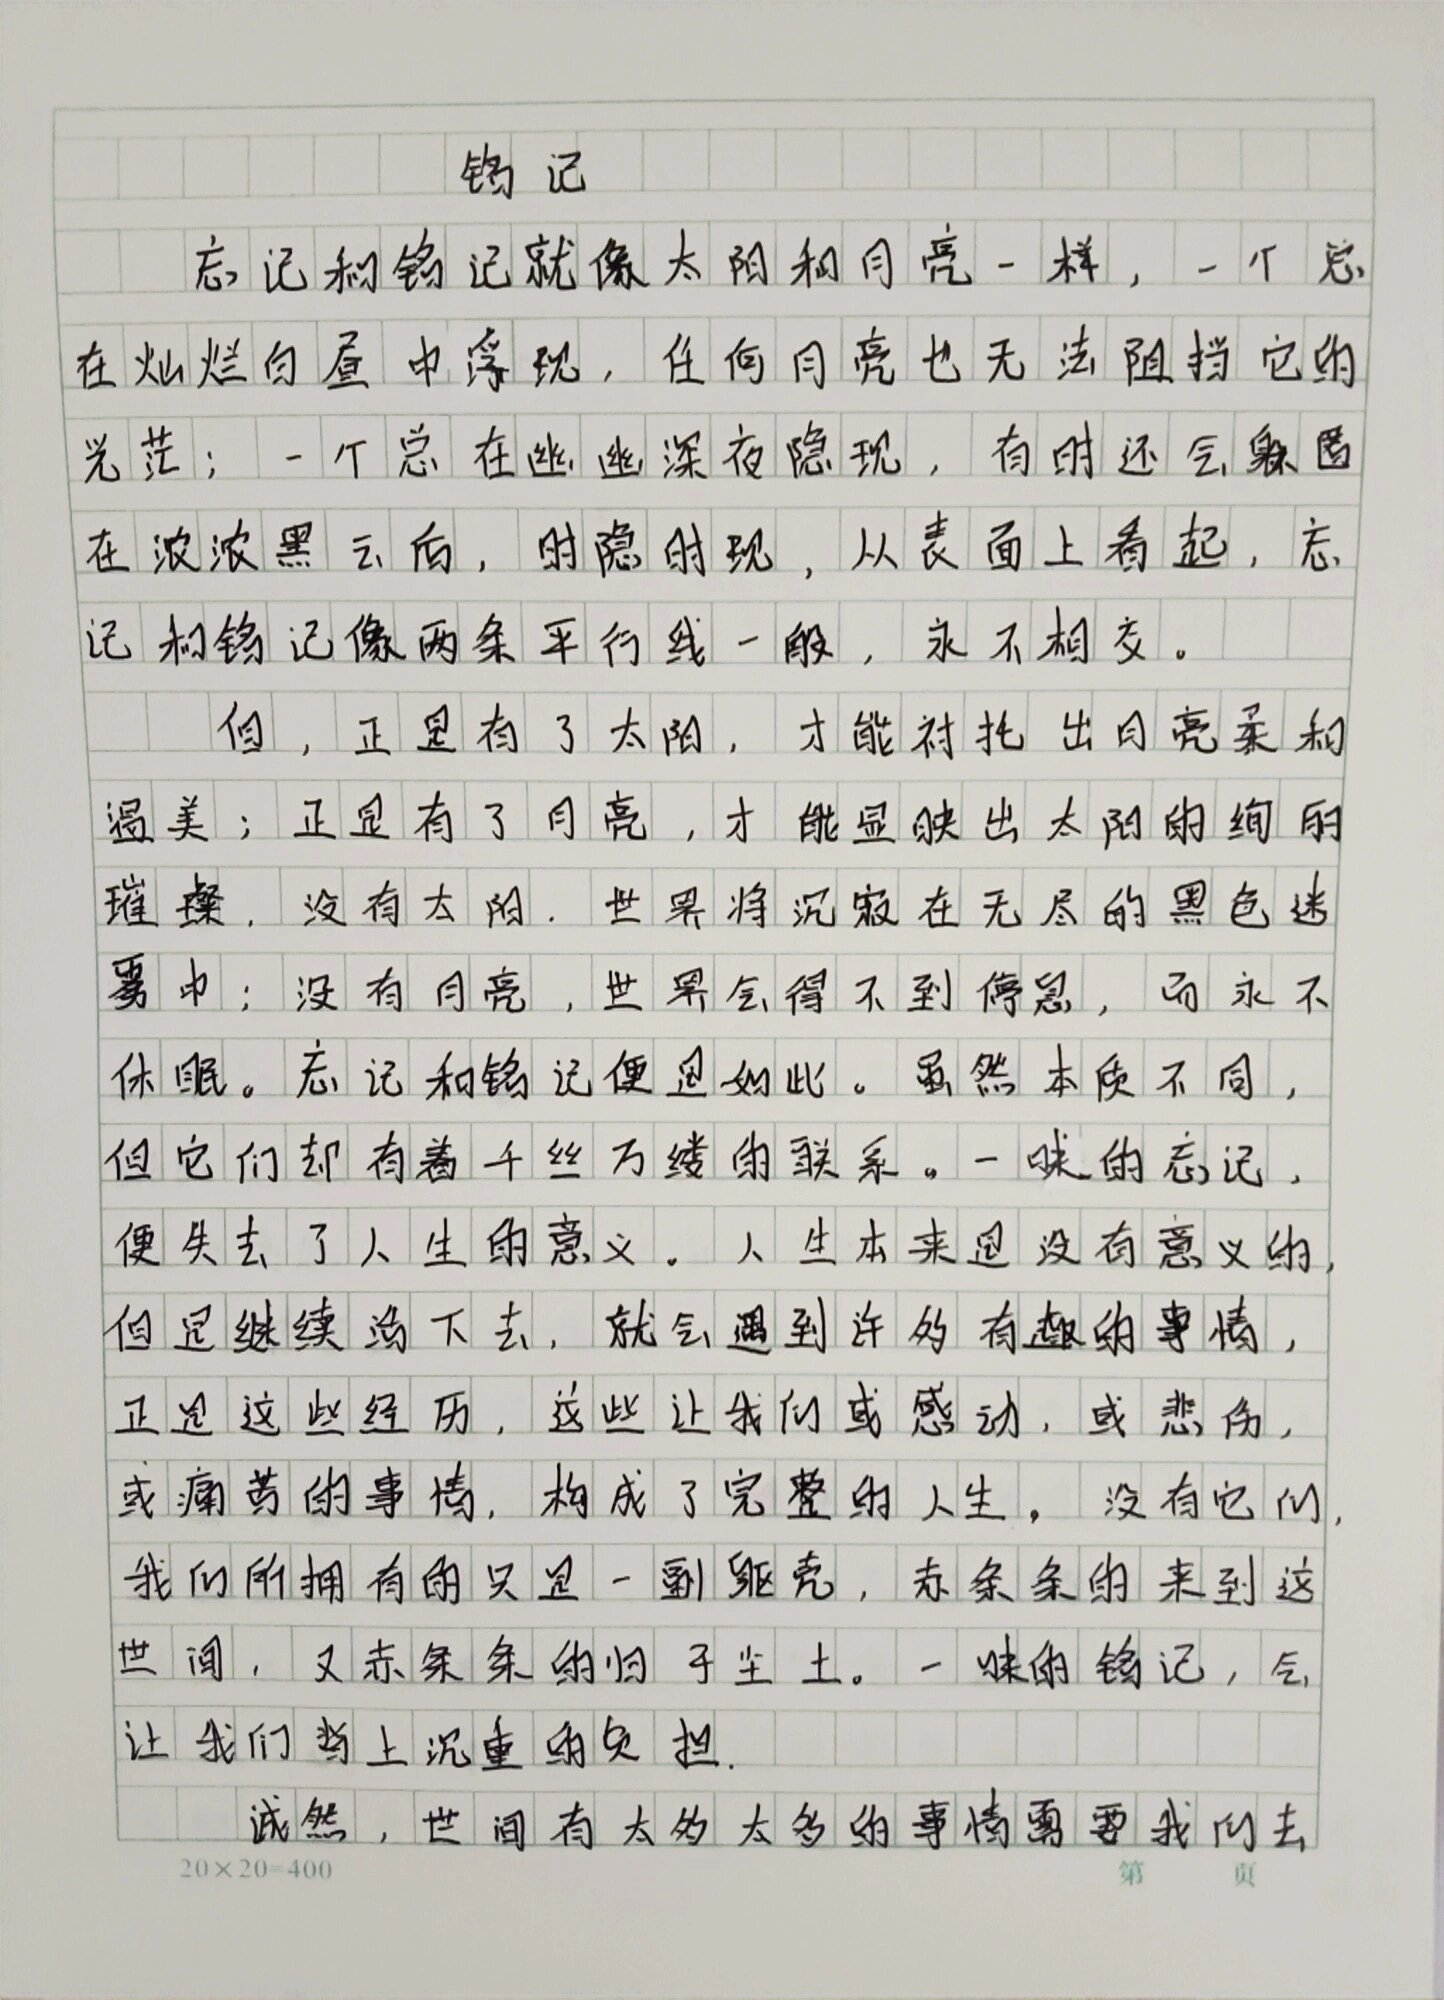 铭记
忘记和铭记就像太阳和月亮一样，一个总
在灿烂白昼中浮现，任何月亮也无法阻挡它的
光茫；一个总在幽幽深夜隐现，有时还会躲匿
在浓浓黑云后，时隐时现，从表面上看起，忘
记和铭记像两条平行线一般，永不相交。
但，正是有了太阳，才能衬托出月亮柔和
温美；正是有了月亮，才能显映出太阳的绚丽
璀璨，没有太阳，世界将沉寂在无尽的黑色迷
雾中；没有月亮，世界会得不到停息，而永不
休眠。忘记和铭记便是如此。虽然本质不同，
但它们却有着千丝万缕的联系。一昧的忘记，
便失去了人生的意义。人生本来是没有意义的，
但是继续活下去，就会遇到许多有趣的事情，
正是这些经历，这些让我们或感动，或悲伤，
或痛苦的事情，构成了完整的人生。没有它们，
我们所拥有的只是一副躯壳，赤条条的来到这
世间，又赤条条的归于尘土。一昧的铭记，会
让我们背上沉重的负担.
诚然，世间有太多太多的事情需要我们去
20×20=400 第 页